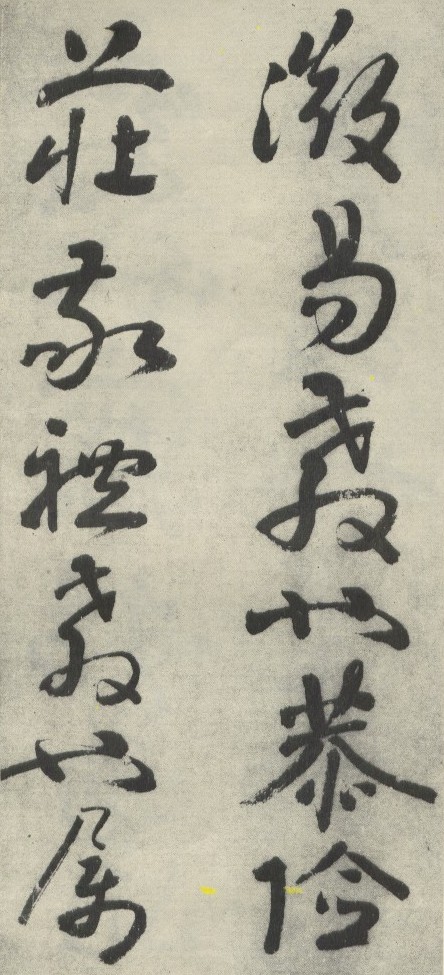 微易教也恭儉
莊敬禮教也属